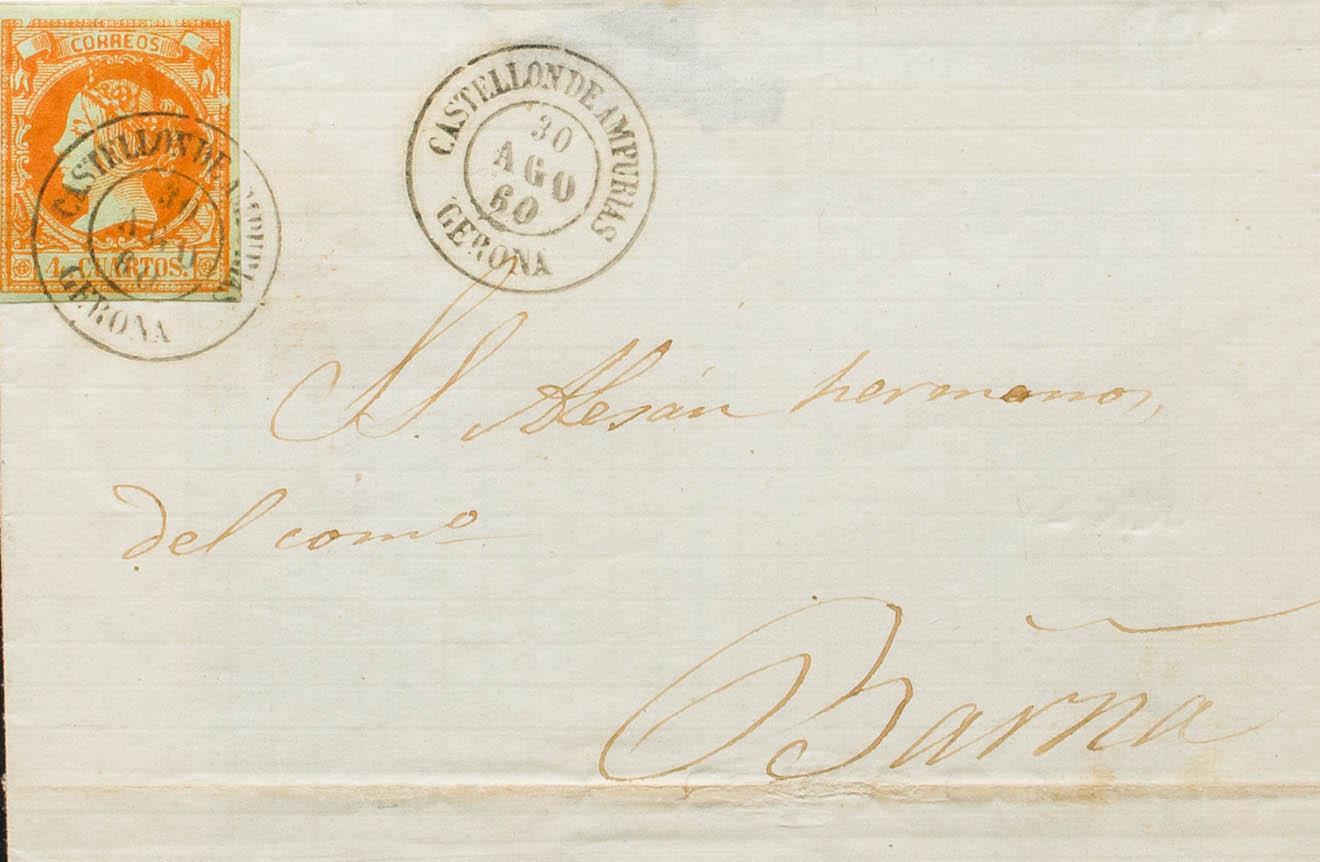 CORREOS
4 CUARTOS.
CASTELLON DE AMPURIAS
30
AGO
60
GERONA
CASTELLON DE AMPURIAS
30
AGO
60
GERONA
S. S. Alesán hermanos,
del comº
Barña